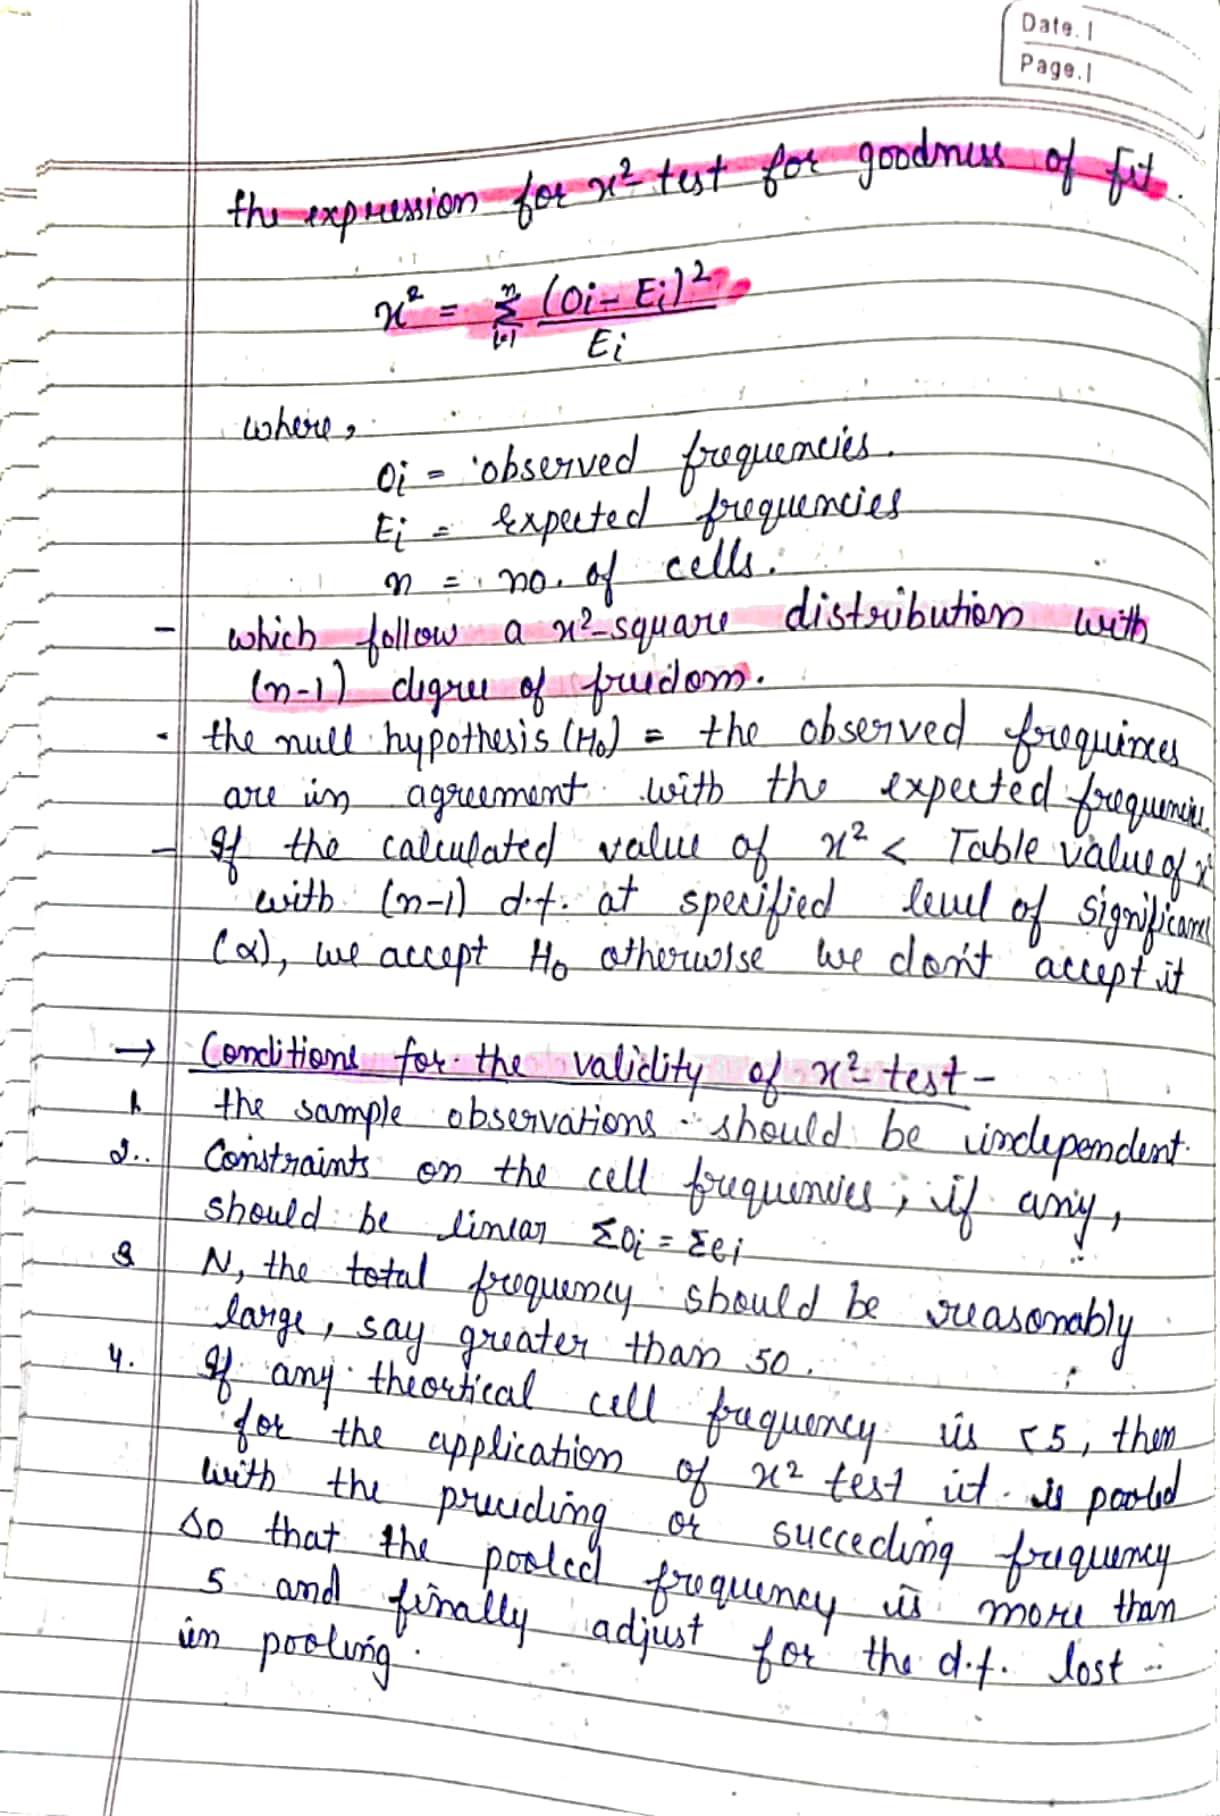 Date.
Page.
the expression for x² test for goodness of fit.
x² = n Σ i=1 (Oi - Ei)² / Ei
where,
Oi = observed frequencies.
Ei = Expected frequencies
n = no. of cells.
- which follow a x²-square distribution with
(n-1) degree of freedom.
- the null hypothesis (H₀) = the observed frequinces
are in agreement with the expected frequencies.
- If the calculated value of x² < Table value of x²
with (n-1) d.f. at specified level of significance
(α), we accept H₀ otherwise we don't accept it
→ Conditions for the validity of x² test -
1. the sample observations should be independent.
2. Constraints on the cell frequencies, if any,
should be linear ΣOi = Σei
3 N, the total frequency should be reasonably
large, say greater than 50.
4. If any theortical cell frequency is <5, then
for the application of x² test it is pooled
with the preceding or succeding frequency
so that the pooled frequency is more than
5 and finally adjust for the d.f. lost
in pooling.